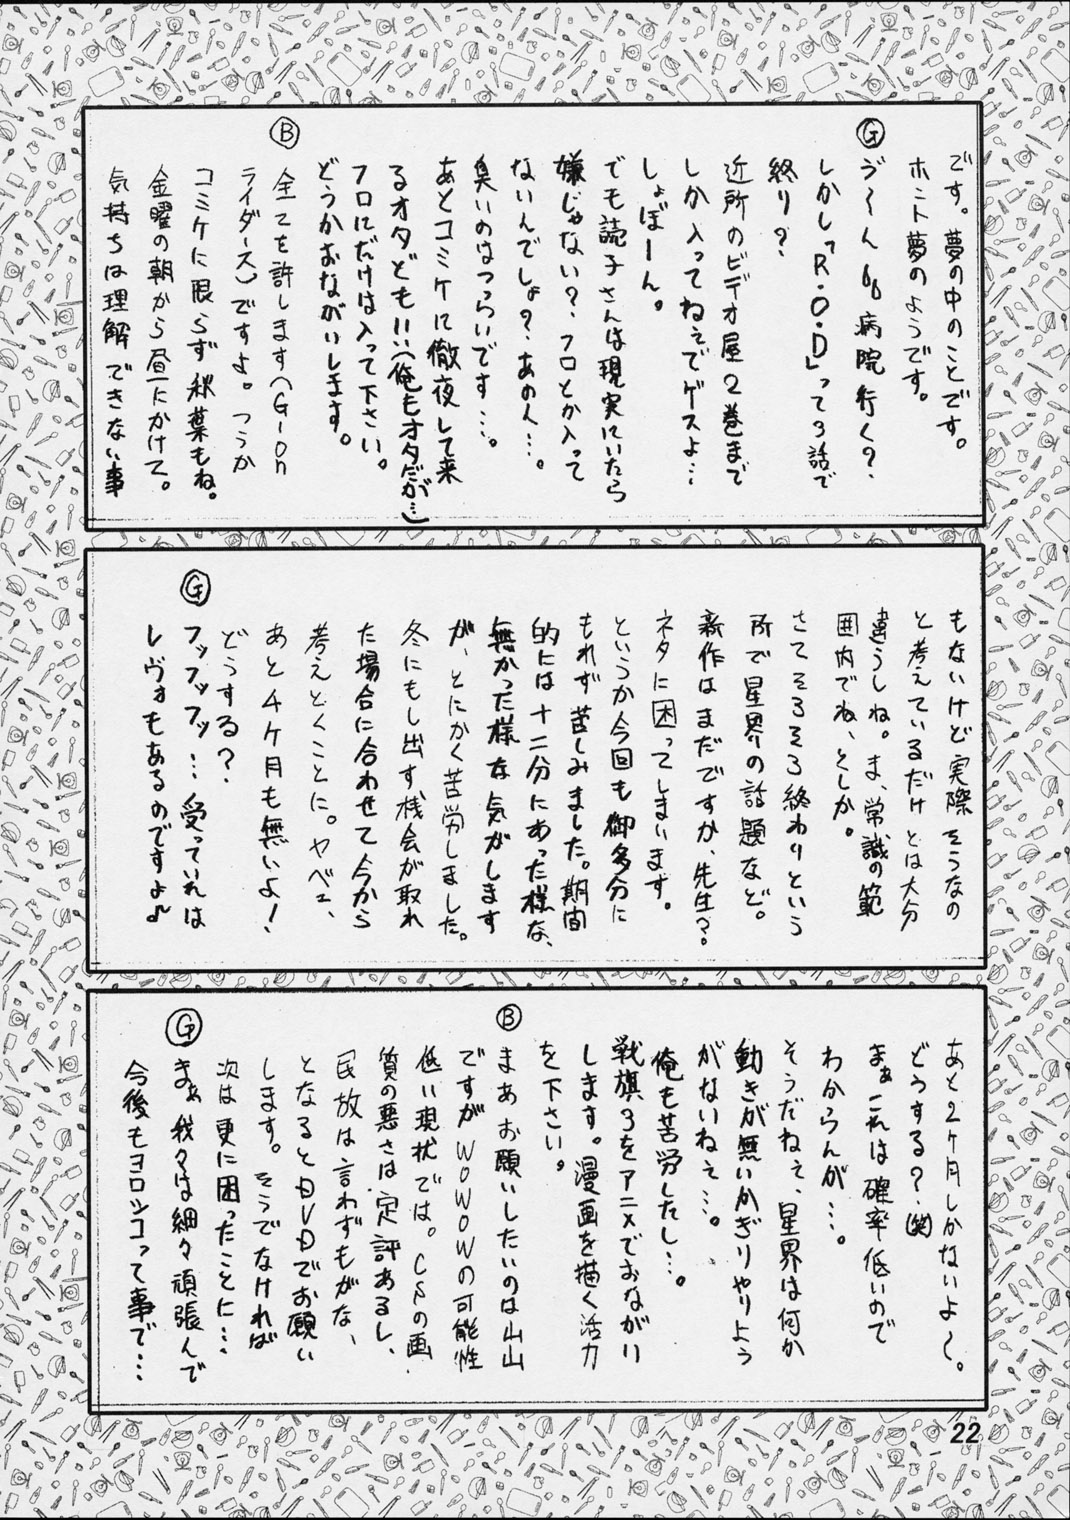 です。夢の中のことです。
ホント夢のようです。
Ⓖ
う〜ん 病院行く？
しかし「R・O・D」って3話で
終り？
近所のビデオ屋2巻まで
しか入ってねえでゲスよ…
しょぼーん。
でも読子さんは現実にいたら
嫌じゃない？フロとか入って
ないんでしょ？あの人…。
臭いのはつらいです…。
あとコミケに徹夜して来
るオタども!!(俺もオタだが…)
フロにだけは入って下さい。
どうかおながいします。
Ⓑ
全てを許します(G-on
ライダース)ですよ。つうか
コミケに限らず秋葉もね。
金曜の朝から昼にかけて。
気持ちは理解できない事
もないけど実際そうなの
と考えているだけとは大分
違うしね。ま、常識の範
囲内でね、としか。
さてそろそろ終わりという
所で星界の話題など。
新作はまだですか、先生？
ネタに困ってしまいます。
というか今回も御多分に
もれず苦しみました。期間
的には十二分にあった様な、
無かった様な気がします
が、とにかく苦労しました。
冬にもし出す機会が取れ
た場合に合わせて今から
考えとくことに。ヤベェ、
あと4ケ月も無いよ！
どうする？
Ⓖ
フッフッフッ…受っていれば
レヴォもあるのですよ♪
あと2ケ月しかないよ〜。
どうする？(笑)
まぁこれは確率低いので
わからんが…。
そうだねぇ、星界は何か
動きが無いかぎりやりよう
がないねぇ…。
俺も苦労したし…。
戦旗3をアニメでおながい
します。漫画を描く活力
を下さい。
Ⓑ
まあお願いしたいのは山山
ですがWOWOWの可能性
低い現状では。CSの画
質の悪さは定評あるし、
民放は言わずもがな、
となるとDVDでお願い
します。そうでなければ
次は更に困ったことに…
Ⓖ
まぁ我々は細々頑張んで
今後もヨロシコって事で…
22